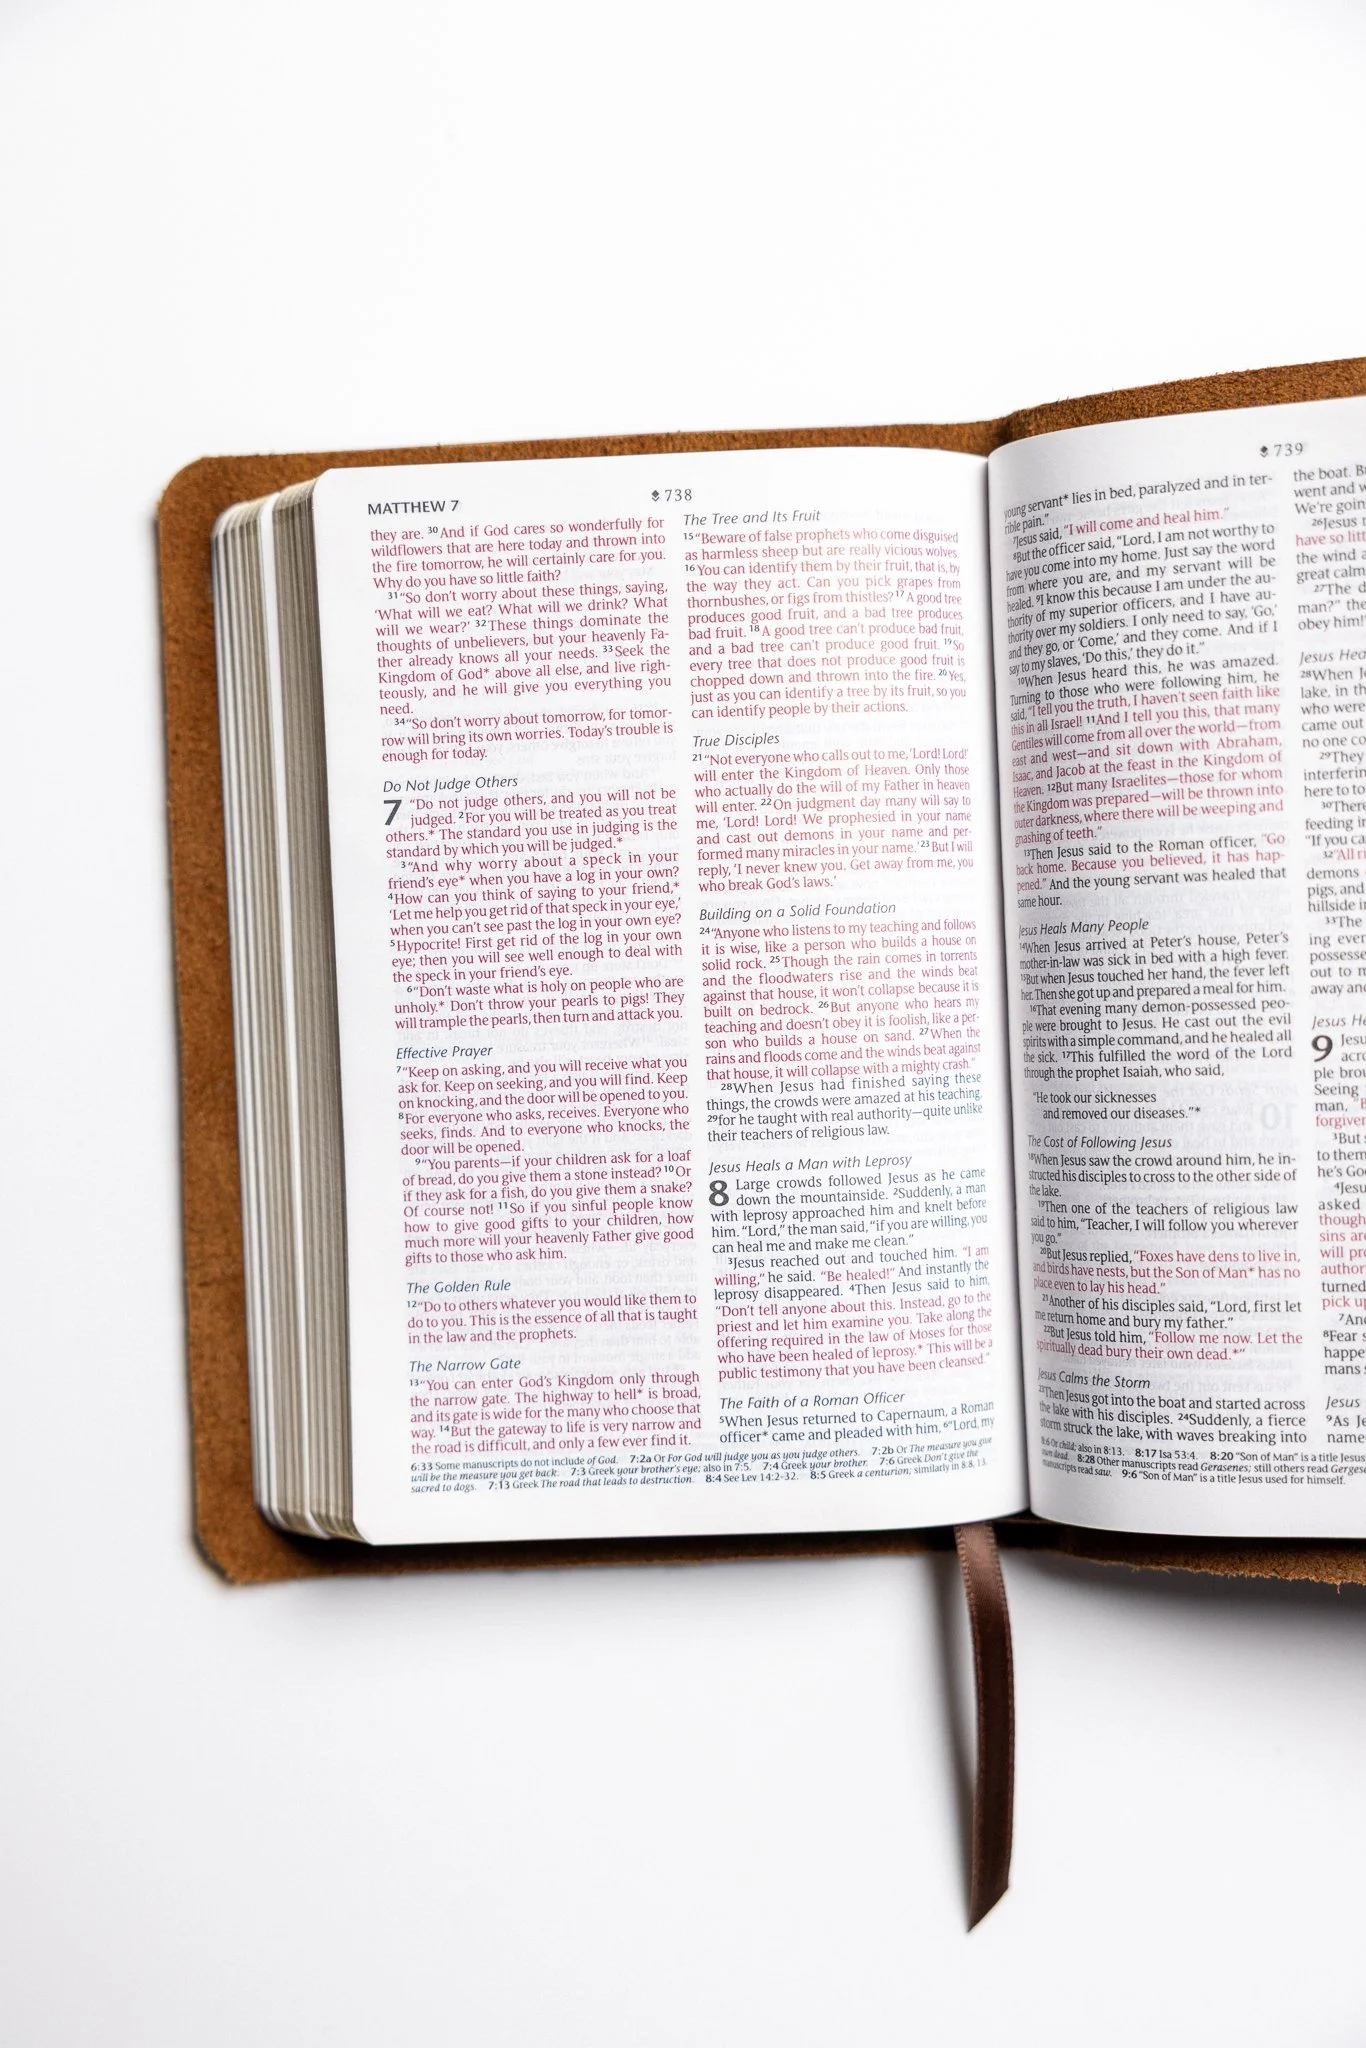 MATTHEW 7
738
they are. 30And if God cares so wonderfully for
wildflowers that are here today and thrown into
the fire tomorrow, he will certainly care for you.
Why do you have so little faith?
31“So don’t worry about these things, saying,
‘What will we eat? What will we drink? What
will we wear?’ 32These things dominate the
thoughts of unbelievers, but your heavenly Fa-
ther already knows all your needs. 33Seek the
Kingdom of God* above all else, and live righ-
teously, and he will give you everything you
need.
34“So don’t worry about tomorrow, for tomor-
row will bring its own worries. Today’s trouble is
enough for today.
Do Not Judge Others
7 “Do not judge others, and you will not be
judged. 2For you will be treated as you treat
others.* The standard you use in judging is the
standard by which you will be judged.*
3“And why worry about a speck in your
friend’s eye* when you have a log in your own?
4How can you think of saying to your friend,*
‘Let me help you get rid of that speck in your eye,’
when you can’t see past the log in your own eye?
5Hypocrite! First get rid of the log in your own
eye; then you will see well enough to deal with
the speck in your friend’s eye.
6“Don’t waste what is holy on people who are
unholy.* Don’t throw your pearls to pigs! They
will trample the pearls, then turn and attack you.
Effective Prayer
7“Keep on asking, and you will receive what you
ask for. Keep on seeking, and you will find. Keep
on knocking, and the door will be opened to you.
8For everyone who asks, receives. Everyone who
seeks, finds. And to everyone who knocks, the
door will be opened.
9“You parents—if your children ask for a loaf
of bread, do you give them a stone instead? 10Or
if they ask for a fish, do you give them a snake?
Of course not! 11So if you sinful people know
how to give good gifts to your children, how
much more will your heavenly Father give good
gifts to those who ask him.
The Golden Rule
12“Do to others whatever you would like them to
do to you. This is the essence of all that is taught
in the law and the prophets.
The Narrow Gate
13“You can enter God’s Kingdom only through
the narrow gate. The highway to hell* is broad,
and its gate is wide for the many who choose that
way. 14But the gateway to life is very narrow and
the road is difficult, and only a few ever find it.
The Tree and Its Fruit
15“Beware of false prophets who come disguised
as harmless sheep but are really vicious wolves.
16You can identify them by their fruit, that is, by
the way they act. Can you pick grapes from
thornbushes, or figs from thistles? 17A good tree
produces good fruit, and a bad tree produces
bad fruit. 18A good tree can’t produce bad fruit,
and a bad tree can’t produce good fruit. 19So
every tree that does not produce good fruit is
chopped down and thrown into the fire. 20Yes,
just as you can identify a tree by its fruit, so you
can identify people by their actions.
True Disciples
21“Not everyone who calls out to me, ‘Lord! Lord!’
will enter the Kingdom of Heaven. Only those
who actually do the will of my Father in heaven
will enter. 22On judgment day many will say to
me, ‘Lord! Lord! We prophesied in your name
and cast out demons in your name and per-
formed many miracles in your name.’ 23But I will
reply, ‘I never knew you. Get away from me, you
who break God’s laws.’
Building on a Solid Foundation
24“Anyone who listens to my teaching and follows
it is wise, like a person who builds a house on
solid rock. 25Though the rain comes in torrents
and the floodwaters rise and the winds beat
against that house, it won’t collapse because it is
built on bedrock. 26But anyone who hears my
teaching and doesn’t obey it is foolish, like a per-
son who builds a house on sand. 27When the
rains and floods come and the winds beat against
that house, it will collapse with a mighty crash.”
28When Jesus had finished saying these
things, the crowds were amazed at his teaching,
29for he taught with real authority—quite unlike
their teachers of religious law.
Jesus Heals a Man with Leprosy
8 Large crowds followed Jesus as he came
down the mountainside. 2Suddenly, a man
with leprosy approached him and knelt before
him. “Lord,” the man said, “if you are willing, you
can heal me and make me clean.”
3Jesus reached out and touched him. “I am
willing,” he said. “Be healed!” And instantly the
leprosy disappeared. 4Then Jesus said to him,
“Don’t tell anyone about this. Instead, go to the
priest and let him examine you. Take along the
offering required in the law of Moses for those
who have been healed of leprosy.* This will be a
public testimony that you have been cleansed.”
The Faith of a Roman Officer
5When Jesus returned to Capernaum, a Roman
officer* came and pleaded with him, 6“Lord, my
6:33 Some manuscripts do not include of God. 7:2a Or For God will judge you as you judge others. 7:2b Or The measure you give
will be the measure you get back. 7:3 Greek your brother’s eye; also in 7:5. 7:4 Greek your brother. 7:6 Greek Don’t give the
sacred to dogs. 7:13 Greek The road that leads to destruction. 8:4 See Lev 14:2-32. 8:5 Greek a centurion; similarly in 8:8, 13.
739
young servant* lies in bed, paralyzed and in ter-
rible pain.”
7Jesus said, “I will come and heal him.”
8But the officer said, “Lord, I am not worthy to
have you come into my home. Just say the word
from where you are, and my servant will be
healed. 9I know this because I am under the au-
thority of my superior officers, and I have au-
thority over my soldiers. I only need to say, ‘Go,’
and they go, or ‘Come,’ and they come. And if I
say to my slaves, ‘Do this,’ they do it.”
10When Jesus heard this, he was amazed.
Turning to those who were following him, he
said, “I tell you the truth, I haven’t seen faith like
this in all Israel! 11And I tell you this, that many
Gentiles will come from all over the world—from
east and west—and sit down with Abraham,
Isaac, and Jacob at the feast in the Kingdom of
Heaven. 12But many Israelites—those for whom
the Kingdom was prepared—will be thrown into
outer darkness, where there will be weeping and
gnashing of teeth.”
13Then Jesus said to the Roman officer, “Go
back home. Because you believed, it has hap-
pened.” And the young servant was healed that
same hour.
Jesus Heals Many People
14When Jesus arrived at Peter’s house, Peter’s
mother-in-law was sick in bed with a high fever.
15But when Jesus touched her hand, the fever left
her. Then she got up and prepared a meal for him.
16That evening many demon-possessed peo-
ple were brought to Jesus. He cast out the evil
spirits with a simple command, and he healed all
the sick. 17This fulfilled the word of the Lord
through the prophet Isaiah, who said,
“He took our sicknesses
and removed our diseases.”*
The Cost of Following Jesus
18When Jesus saw the crowd around him, he in-
structed his disciples to cross to the other side of
the lake.
19Then one of the teachers of religious law
said to him, “Teacher, I will follow you wherever
you go.”
20But Jesus replied, “Foxes have dens to live in,
and birds have nests, but the Son of Man* has no
place even to lay his head.”
21Another of his disciples said, “Lord, first let
me return home and bury my father.”
22But Jesus told him, “Follow me now. Let the
spiritually dead bury their own dead.*”
Jesus Calms the Storm
23Then Jesus got into the boat and started across
the lake with his disciples. 24Suddenly, a fierce
storm struck the lake, with waves breaking into
the boat. B
went and w
We’re goin
26Jesus r
have so littl
the wind a
great calm
27The d
man?” the
obey him!”
Jesus Hea
28When J
lake, in th
who were
came out
no one co
29They
interferin
here to to
30There
feeding in
“If you ca
32“All ri
demons
pigs, and
hillside in
33The
ing ever
possesse
out to m
away an
Jesus He
9 Jesu
acro
ple brou
Seeing
man, “B
forgiven
3But s
to them
he’s Go
4Jesu
asked
though
sins are
will pro
author
turned
pick up
7And
8Fear s
happe
mans s
Jesus
9As Je
name
8:6 Or child; also in 8:13. 8:17 Isa 53:4. 8:20 “Son of Man” is a title Jesus
own dead. 8:28 Other manuscripts read Gerasenes; still others read Gerges
manuscripts read saw. 9:6 “Son of Man” is a title Jesus used for himself.